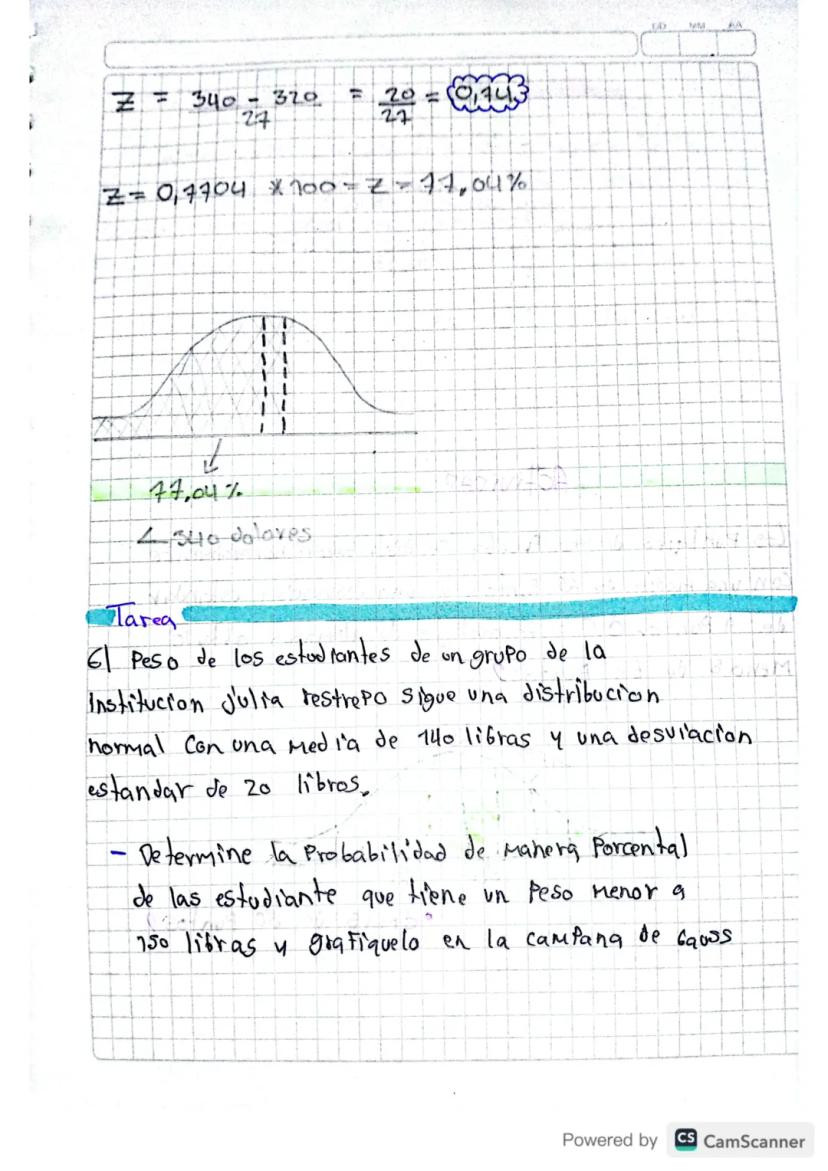 DD MM AA
Z = 340 - 320 = 20 = 0,743
27 27
Z = 0,7704 * 100 = Z = 77,04%
77,04%
∠ 340 dolares
Tarea
6) Peso de los estudiantes de un grupo de la
institucion Julia restrepo sigue una distribucion
normal con una media de 140 libras y una desviacion
estandar de 20 libros.
- Determine la Probabilidad de manera Porcental
de las estudiante que tiene un Peso menor a
150 libras y grafiquelo en la campana de Gauss
Powered by CS CamScanner